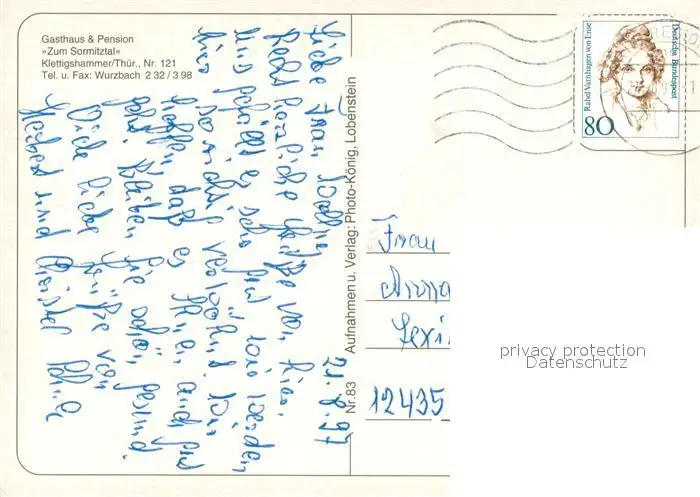 Gasthaus & Pension
»Zum Sormitztal«
Klettigshammer/Thür., Nr. 121
Tel. u. Fax: Wurzbach 2 32 / 3 98
21.8.97
Liebe Frau
Recht herzliche Grüße von hier.
Uns gefällt es sehr gut wir werden
hier verwöhnt. Wir
hoffen daß es Ihnen auch gut
geht. Bleiben Sie schön gesund.
Viele liebe Grüße von
Herbert und Christel
Nr. 83 Aufnahmen u. Verlag: Photo-König, Lobenstein
Rahel Varnhagen von Ense
Deutsche Bundespost
80
Frau
Anna
12435
privacy protection
Datenschutz